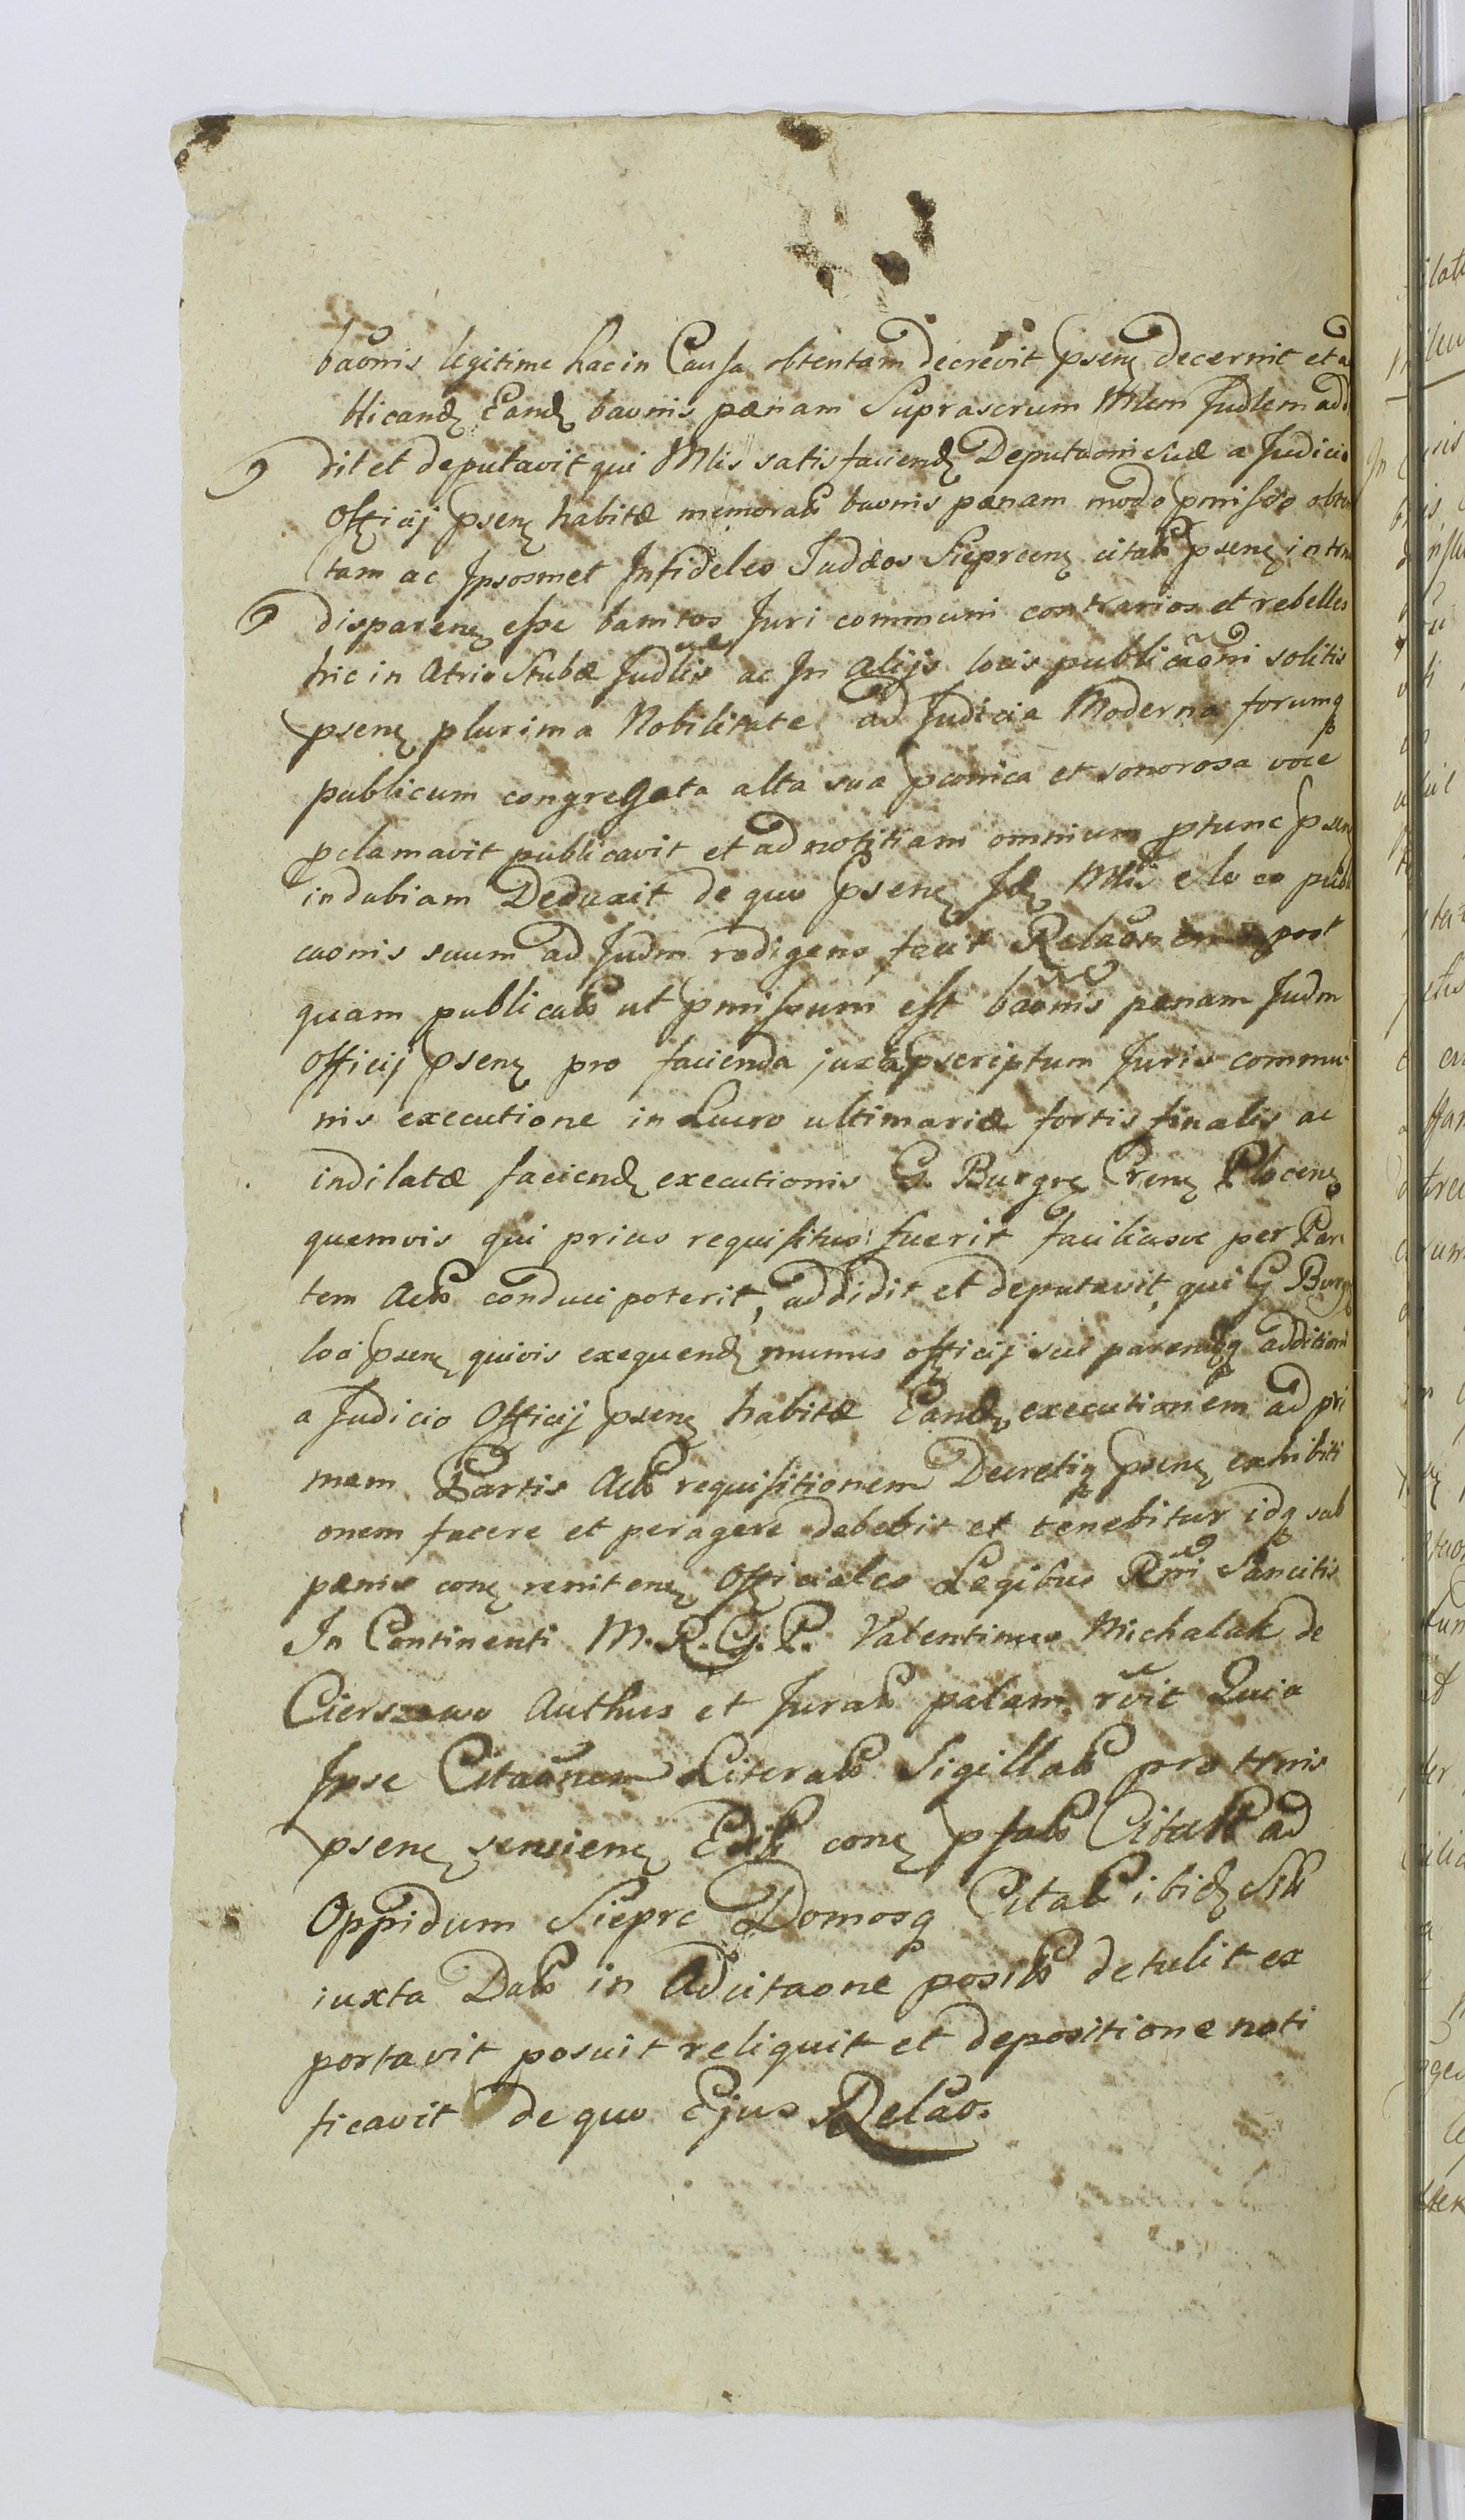 baõnis legitime hac in Causa obtentam decrevit psenς decernit et
blicandς Eandς baõnis pænam Suprascrum Mlem Judlem ad
dit et deputavit qui Mlis satisfaciendς Deputaõni suæ a Judicio
Officij psenς habitæ memorats baõnis pænam modo pmisso obten
tam ac Ipsosmet Infideles Judæos Sieprcenς citats psenς in tno
disparenς esse banitos Juri communi contrarios et rebelles
hic in Atrio Stubæ Judlis ac In alijs locis publicaõni solitis
psenς plurima Nobilitate ad Judicia Moderna forumqꝫ
publicum congregata alta sua pconica et sonorosa voce
pclamavit publicavit et ad notitiam omnium ptunc psenς
indubiam Deduxit de quo psenς Idς Mlis e loco publi
caonis suum ad Judm redigens fecit Relaõnem post
quam publicats ut pmissum est baõnis pænam Judm
Officij psenς pro facienda juxta pscriptum Juris commu
nis executione in Lucro ultimariæ fortis finalis ac
indilatæ faciendς executionis G. Burgrς Crenς Plocenς
quemvis qui prius requisitus fuerit faciliusve per Par
tem Acts conduci poterit, addidit et deputavit, qui G Burgς
loci psenς quivis exequendς munus officij sui parendoqꝫ additioni
a Judicio Officij psenς habitæ Eandς executionem ad pri
mam Partis Acts requisitionem Decretiqꝫ psenς exhibiti
onem facere et peragere debebit et tenebitur idqꝫ sub
pænis conς renitenς Officiales Legibus Rñi Sancitis
In Continenti M. R. G. P. Valentinus Michalak de
Cierszewo Authus et Jurats palam rõit Quia
Ipse Citaõnem Literats Sigillats pro ttnis
psenς servienς Edits conς psats Citats ad
Oppidum Sieprc Domosqꝫ Citats ibidς Sits
iuxta Dats in Adcitaone posits detulit ex
portavit posuit reliquit et depositione noti
ficavit de quo Ejus Relaõ.